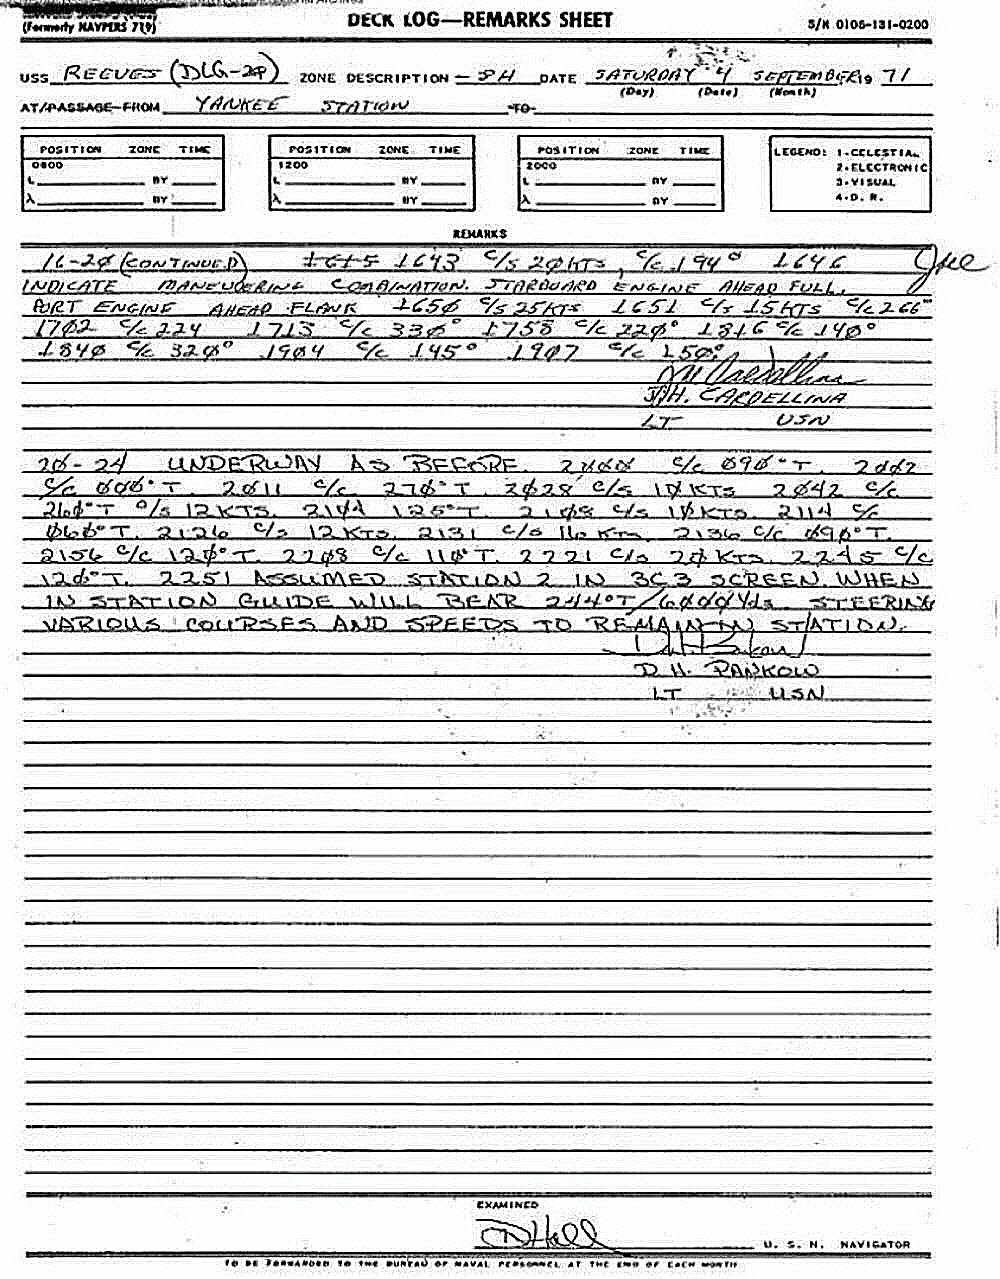 DECK LOG—REMARKS SHEET
(Formerly NAVPERS 719)
S/N 0105-131-0200
USS REEVES (DLG-24) ZONE DESCRIPTION -8H DATE SATURDAY 4 SEPTEMBER 19 71
(Day) (Date) (Month)
AT/PASSAGE FROM YANKEE STATION TO
POSITION ZONE TIME
0800
L BY
λ BY
POSITION ZONE TIME
1200
L BY
λ BY
POSITION ZONE TIME
2000
L BY
λ BY
LEGEND: 1-CELESTIAL
2-ELECTRONIC
3-VISUAL
4-D. R.
REMARKS
16-20 (CONTINUED) 1615 1643 C/S 20 KTS, C/C 194° 1646
INDICATE MANEUVERING COMBINATION. STARBOARD ENGINE AHEAD FULL,
PORT ENGINE AHEAD FLANK 1650 C/S 25 KTS 1651 C/S 15 KTS C/C 266°
1702 C/C 224 1713 C/C 330° 1758 C/C 220° 1816 C/C 140°
1840 C/C 320° 1904 C/C 145° 1907 C/C 150°
J.H. CARDELLINA
LT USN
20-24 UNDERWAY AS BEFORE. 2000 C/C 090°T. 2002
C/C 000°T. 2011 C/C 270°T. 2028 C/S 10 KTS 2042 C/C
260°T C/S 12 KTS. 2104 125°T. 2108 C/S 10 KTS. 2114 C/C
060°T. 2126 C/S 12 KTS. 2131 C/S 16 KTS. 2136 C/C 090°T.
2156 C/C 120°T. 2208 C/C 110°T. 2221 C/S 20 KTS. 2245 C/C
120°T. 2251 ASSUMED STATION 2 IN 3C3 SCREEN. WHEN
IN STATION GUIDE WILL BEAR 244°T/6000 Yds. STEERING
VARIOUS COURSES AND SPEEDS TO REMAIN IN STATION.
D. H. PANKOW
LT USN
EXAMINED
DHall
U. S. N. NAVIGATOR
TO BE FORWARDED TO THE BUREAU OF NAVAL PERSONNEL AT THE END OF EACH MONTH